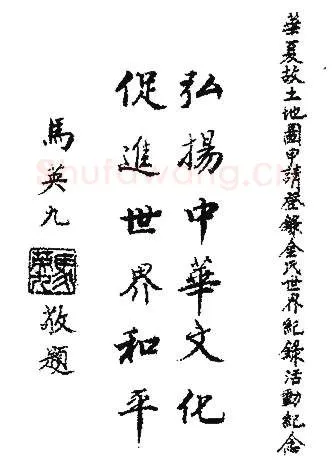 華夏故土地圖申請登錄金氏世界紀錄活動紀念
弘揚中華文化
促進世界和平
馬英九
馬英九
敬題
Shufawang.cn